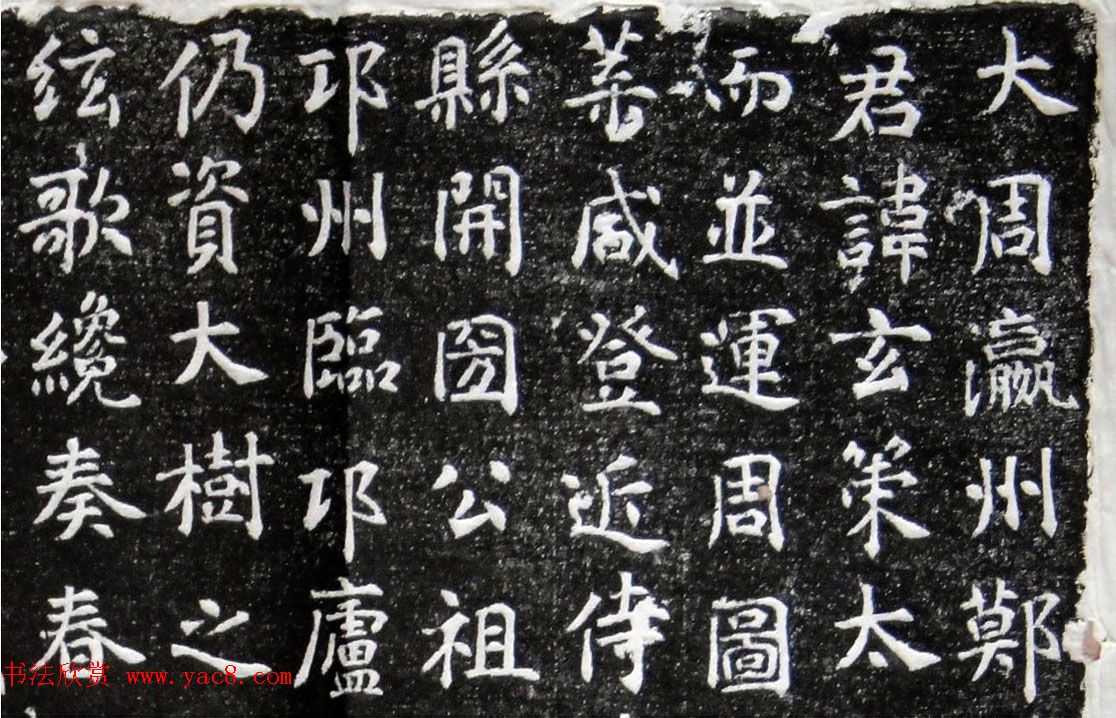 大周瀛州鄭
君諱玄策太
而並運周圖
葉咸登近侍
縣開圀公祖
邛州臨邛廬
仍資大樹之
絃歌纔奏春
书法欣赏 www.yac8.com